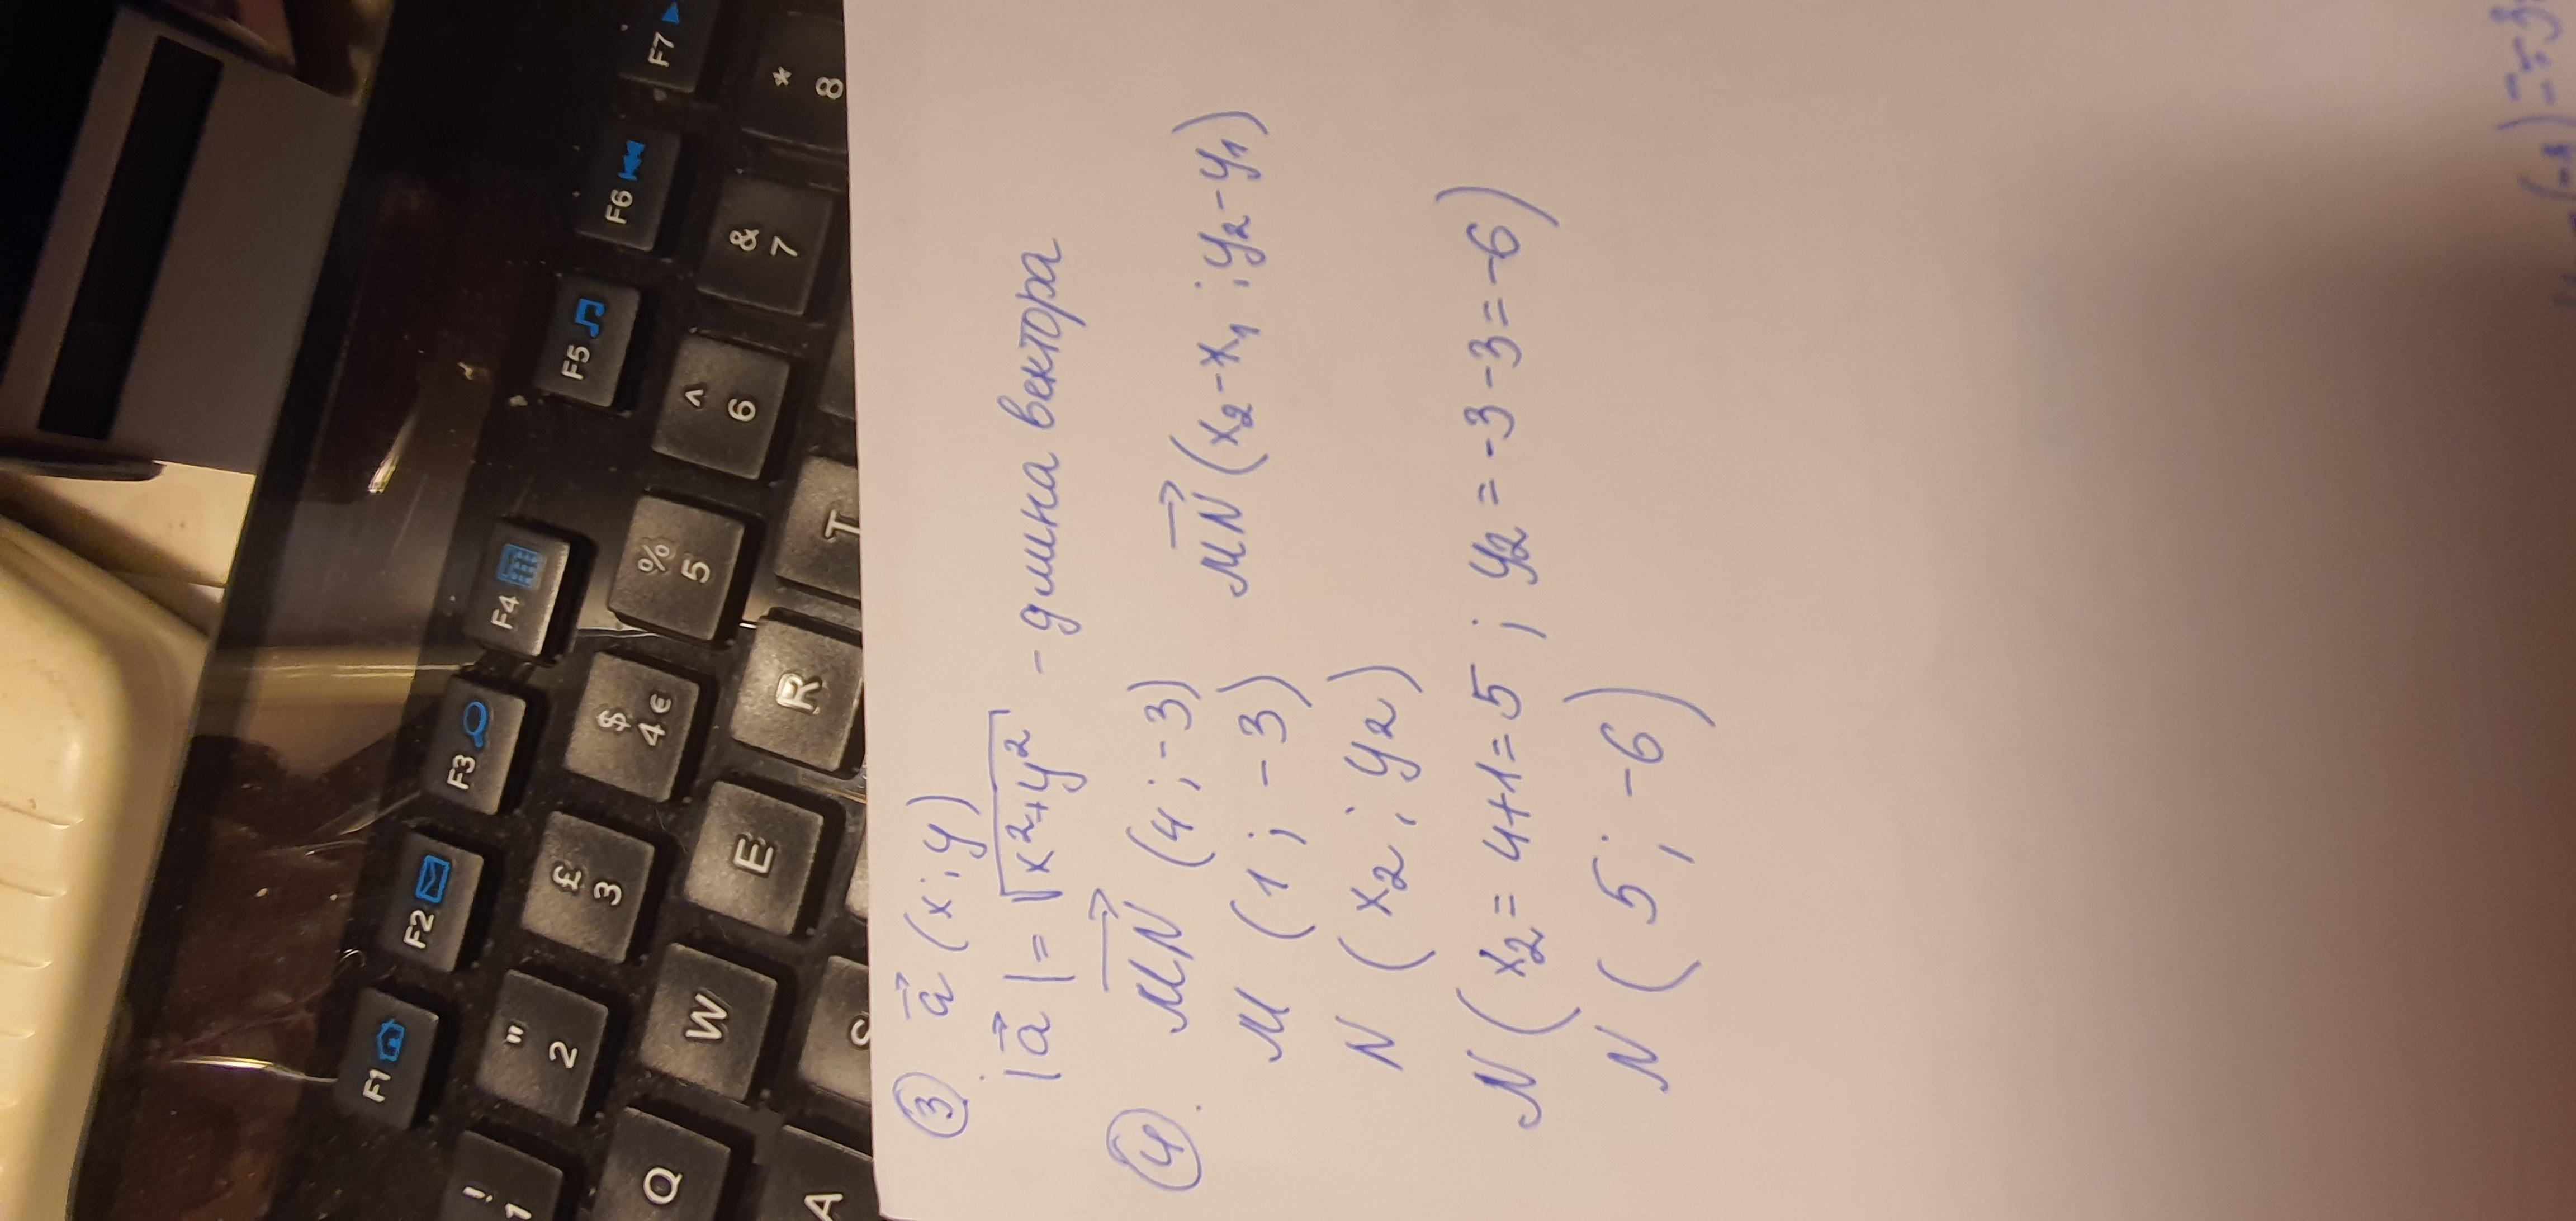 ③ a⃗ (x; y)
|a⃗| = √x²+y² - длина вектора
④ MN⃗ (4; -3) MN⃗ (x₂-x₁; y₂-y₁)
M (1; -3)
N (x₂; y₂)
N (x₂ = 4+1 = 5; y₂ = -3-3 = -6)
N (5; -6)
F1
F2
F3
F4
F5
F6
F7
! 1
" 2
£ 3
$ 4 €
% 5
^ 6
& 7
* 8
Q
W
E
R
T
A
S